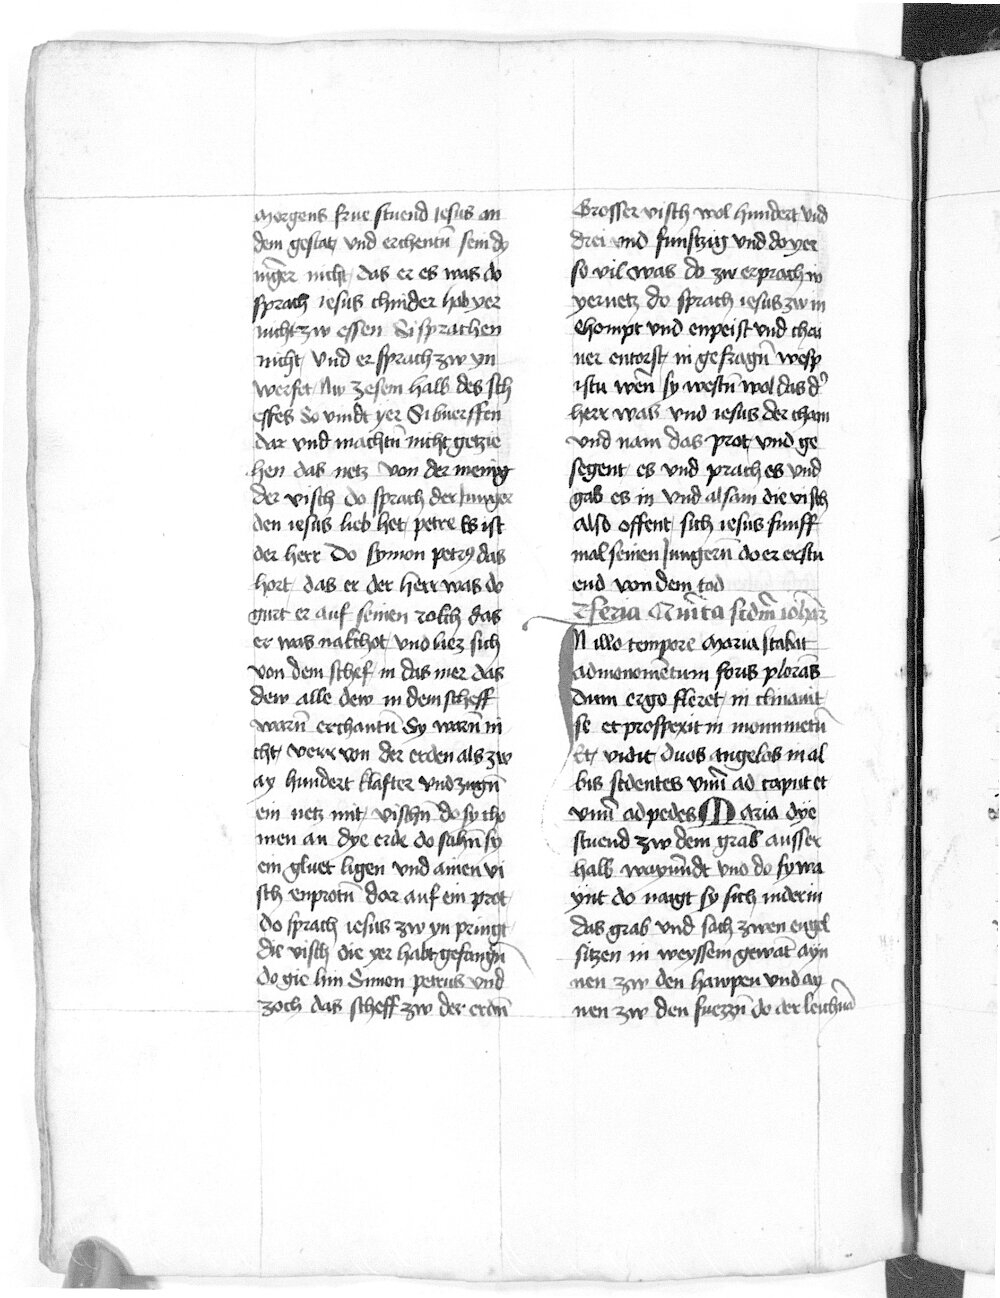 Morgens frue stuend iesus an
dem gestatt vnd erchentn̄ sein dy
iunḡer nicht das er es was do
sprach iesus chinder hab yer
nicht zw essen Si sprachen
nicht Vnd er sprach zw yn
werfet Aw zesem halb des sch
effes so vindt yer Si buerffen
dar vnd machtn̄ nicht getzie
hen das netz von der menig
der visch do sprach der Junger
den iesus lieb het petre Es ist
der herr Do symon petrꝰ das
hort das er der herr was do
gurt er auf seinen rokch das
er was nakchot vnd liez sich
von dem schef in das mer das
dew alle dew in dem scheff
warn̄ erchantn̄ Sy warn̄ ni
cht verr von der erden als zw
ay hundert klafter vnd zugn̄
ein netz mit vischn̄ do sy cho
men an dye erde do sahn̄ sy
ein gluet ligen vnd ainen vi
sch enprotn̄ dor auf ein prot
do sprach iesus zw yn pringt
die visch die yer habt gefangn̄
do gie hin Simon petrus vnd
zoch das scheff zw der erdn̄
Grosser visch wol hundert vnd
drei vnd funftzig vnd do yer
so vil was do zw erprach in
yer netz do sprach iesus zw in
chompt vnd enpeist vnd chai
ner entorst in gefragn̄ wesp
istu wen̄ sy westn̄ wol das d'
herr was vnd iesus der cham
vnd nam das prot vnd ge
segent es vnd prach es vnd
gab es in vnd alsam die visch
Also offent sich iesus funff
mal seinen Jungern̄ do er erstu
end von dem tod
Feria Qui̅ta scdm̄ ioha̅z
In illo tempore Maria stabat
ad monomentum foris plora̅s
Dum ergo fleret in clinauit
se et prospexit in monume̅tū
Et vidit duos angelos in al
bis sedentes vnū ad caput et
vnū ad pedes Maria dye
stuend zw dem grab ausser
halb wayundt vnd do sy wa
ynt do naigt sy sich nider in
das grab vnd sach zwen engel
sitzen in weyssem gewat ayn
nen zw den hawpen vnd ay
nen zw den fuezzn̄ do der leichna̅